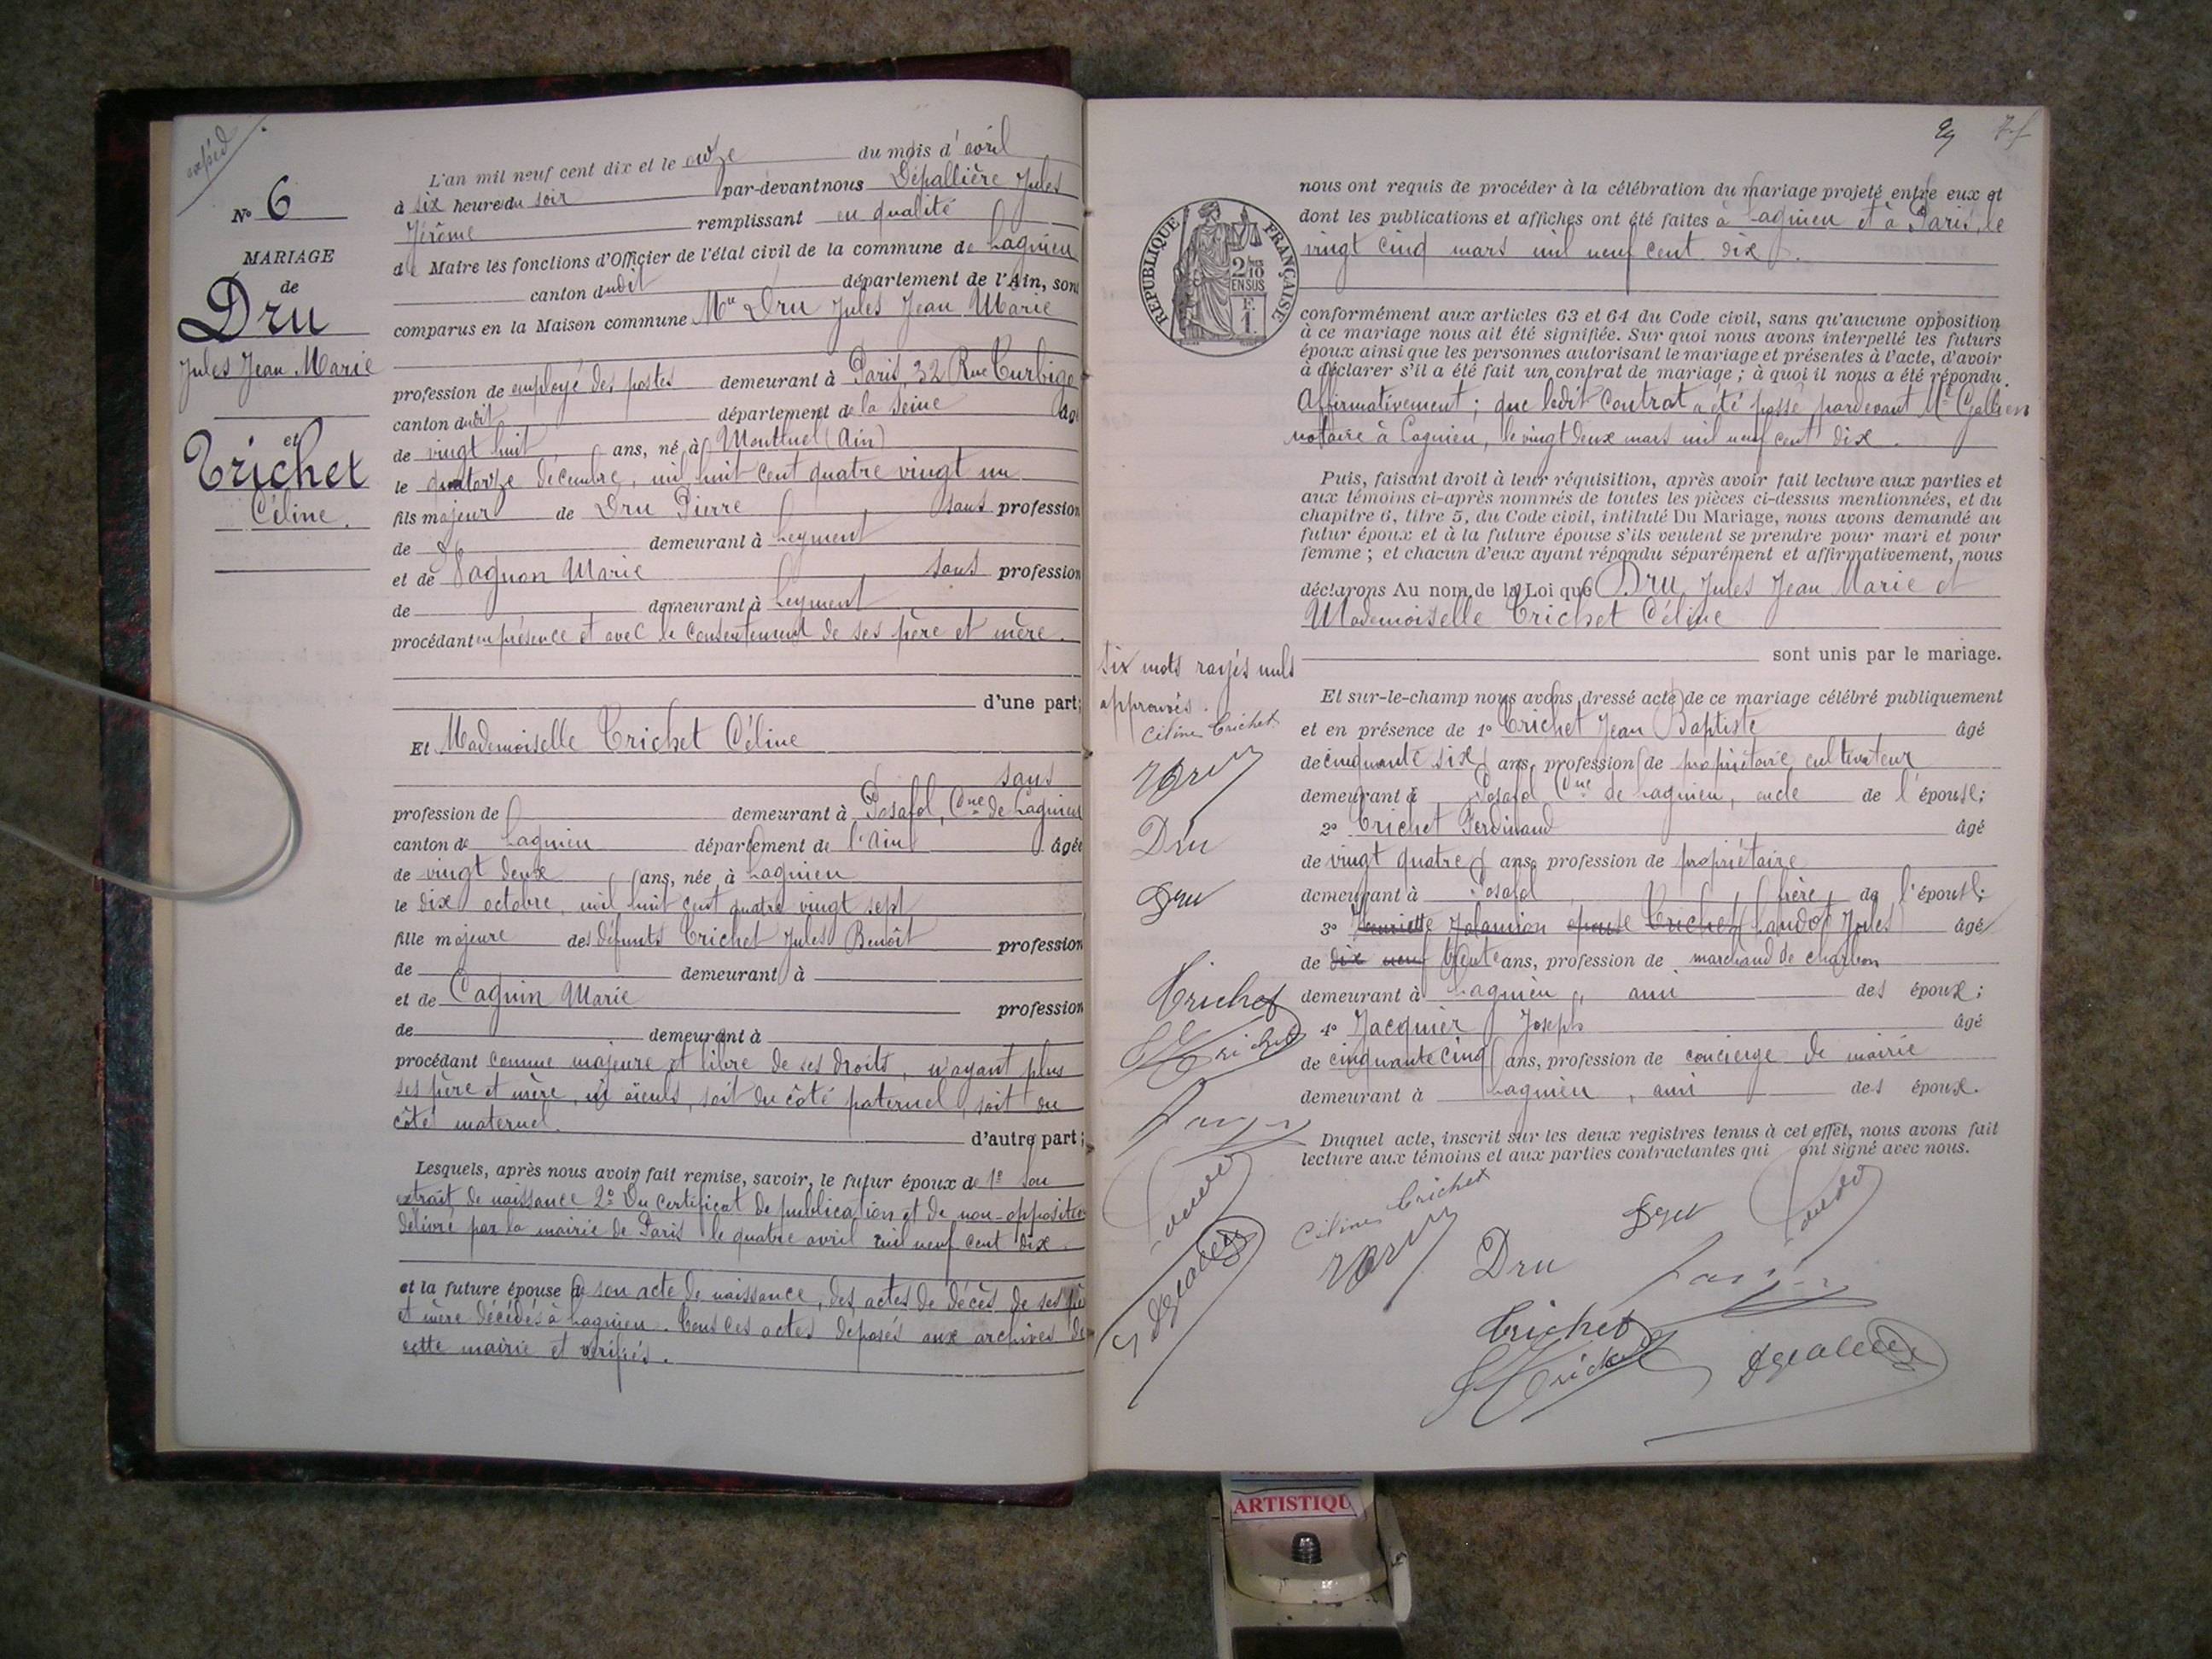 expéd
N° 6
MARIAGE
de
Dru
Jules Jean Marie
et
Trichet
Céline.
L'an mil neuf cent dix et le onze du mois d'avril
à six heure du soir par-devant nous Dépallière Jules
Jérôme remplissant en qualité
de Maire les fonctions d'Officier de l'état civil de la commune de Lagnieu
canton dudit département de l'Ain, sont
comparus en la Maison commune Mr Dru Jules Jean Marie
profession de employé des postes demeurant à Paris, 32 Rue Turbigo
canton dudit département de la Seine âgé
de vingt huit ans, né à Montluel (Ain)
le quatorze décembre, mil huit cent quatre vingt un
fils majeur de Dru Pierre, sans profession
de demeurant à Leyment
et de Pagnon Marie, sans profession
de demeurant à Leyment
procédant en présence et avec le consentement de ses père et mère.
d'une part;
Et Mademoiselle Trichet Céline
sans
profession de demeurant à Posafol, Cne de Lagnieu
canton de Lagnieu département de l'Ain âgée
de vingt deux ans, née à Lagnieu
le dix octobre, mil huit cent quatre vingt sept
fille majeure des défunts Trichet Jules Benoît profession
de demeurant à
et de Caguin Marie profession
de demeurant à
procédant comme majeure et libre de ses droits, n'ayant plus
ses père et mère, ni aïeuls, soit du côté paternel, soit du
côté maternel.
d'autre part;
Lesquels, après nous avoir fait remise, savoir, le futur époux de 1° son
extrait de naissance 2° Du certificat de publication et de non-opposition
délivré par la mairie de Paris le quatre avril mil neuf cent dix.
et la future épouse de son acte de naissance, des actes de décès de ses père
et mère décédés à Lagnieu. Tous ces actes déposés aux archives de
cette mairie et vérifiés.
RÉPUBLIQUE FRANÇAISE
2/10
EN SUS
F.
1.
nous ont requis de procéder à la célébration du mariage projeté entre eux et
dont les publications et affiches ont été faites à Lagnieu et à Paris, le
vingt cinq mars mil neuf cent dix.
conformément aux articles 63 et 64 du Code civil, sans qu'aucune opposition
à ce mariage nous ait été signifiée. Sur quoi nous avons interpellé les futurs
époux ainsi que les personnes autorisant le mariage et présentes à l'acte, d'avoir
à déclarer s'il a été fait un contrat de mariage; à quoi il nous a été répondu.
Affirmativement; que ledit contrat a été passé pardevant Me
notaire à Lagnieu, le vingt deux mars mil neuf cent dix.
Puis, faisant droit à leur réquisition, après avoir fait lecture aux parties et
aux témoins ci-après nommés de toutes les pièces ci-dessus mentionnées, et du
chapitre 6, titre 5, du Code civil, intitulé Du Mariage, nous avons demandé au
futur époux et à la future épouse s'ils veulent se prendre pour mari et pour
femme; et chacun d'eux ayant répondu séparément et affirmativement, nous
déclarons Au nom de la Loi que Dru Jules Jean Marie et
Mademoiselle Trichet Céline
sont unis par le mariage.
Et sur-le-champ nous avons dressé acte de ce mariage célébré publiquement
et en présence de 1° Trichet Jean Baptiste âgé
de cinquante six ans, profession de propriétaire cultivateur
demeurant à Posafol Cne de Lagnieu, oncle de l'épouse;
2° Trichet Ferdinand âgé
de vingt quatre ans, profession de propriétaire
demeurant à Posafol, frère, de l'épouse;
3° Henriette épouse Trichet Jules âgé
de dix neuf trente ans, profession de marchand de charbon
demeurant à Lagnieu, ami des époux;
4° Jacquier Joseph âgé
de cinquante cinq ans, profession de concierge de mairie
demeurant à Lagnieu, ami des époux.
Duquel acte, inscrit sur les deux registres tenus à cet effet, nous avons fait
lecture aux témoins et aux parties contractantes qui ont signé avec nous.
Six mots rayés nuls
approuvés.
Céline Trichet
Dru
Dru
Dru
Trichet
Trichet
Céline Trichet
Dru
Dru
Dru
Trichet
Trichet
ARTISTIQU